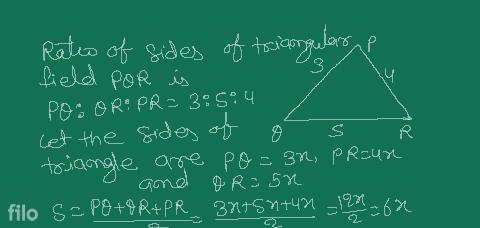 Ratio of sides of triangular
field PQR is
PQ: QR: PR = 3:5:4
Let the sides of
triangle are PQ = 3x, PR=4x
and QR = 5x
S = PQ+QR+PR/2 = 3x+5x+4x/2 = 12x/2 = 6x
P
3
4
Q
5
R
filo